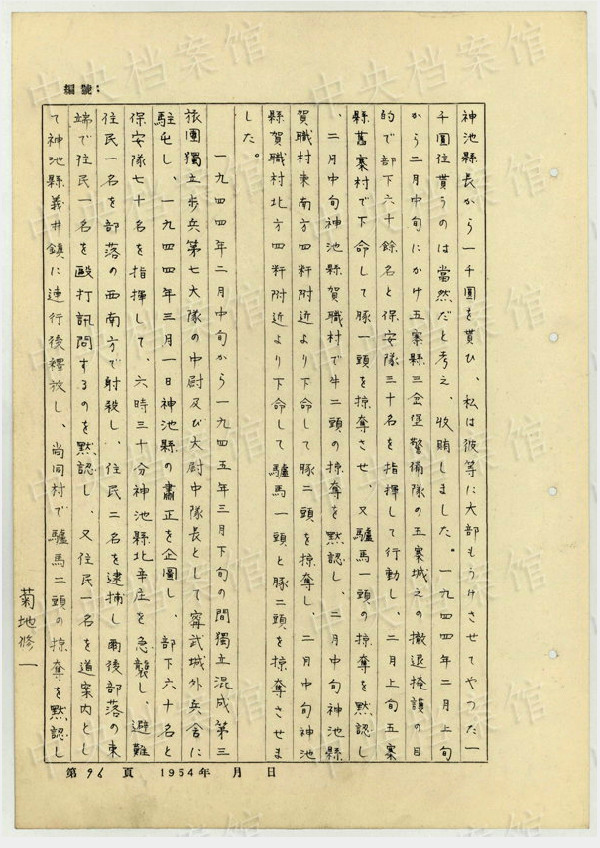 編號:
神池縣長から一千圓を貰ひ、私は彼等に大部もうけさせてやつた一
千圓位貰うのは當然だと考え、收賄しました。一九四四年二月上旬
から二月中旬にかけ五寨縣三岔堡警備隊の五寨城えの撤退掩護の目
的で部下六十餘名と保安隊三十名を指揮して行動し、二月上旬五寨
縣舊寨村で下命して豚一頭を掠奪させ、又驢馬一頭の掠奪を黙認し
、二月中旬神池縣賀職村で牛二頭の掠奪を黙認し、二月中旬神池縣
賀職村東南方四粁附近より下命して豚二頭を掠奪し、二月中旬神池
縣賀職村北方四粁附近より下命して驢馬一頭と豚二頭を掠奪させま
した。
一九四四年二月中旬から一九四五年三月下旬の間獨立混成第三
旅團獨立步兵第七大隊の中尉及び大尉中隊長として寗武城外兵舍に
駐屯し、一九四四年三月一日神池縣の肅正を企圖し、部下六十名と
保安隊七十名を指揮して、六時三十分神池縣北辛庄を急襲し、避難
住民一名を部落の西南方で射殺し、住民二名を逮捕し爾後部落の東
端で住民一名を毆打訊問するのを黙認し、又住民一名を道案内とし
て神池縣義井鎮に連行後釋放し、尚同村で驢馬二頭の掠奪を黙認し
菊地修一
第96頁 1954年 月 日
中央档案馆